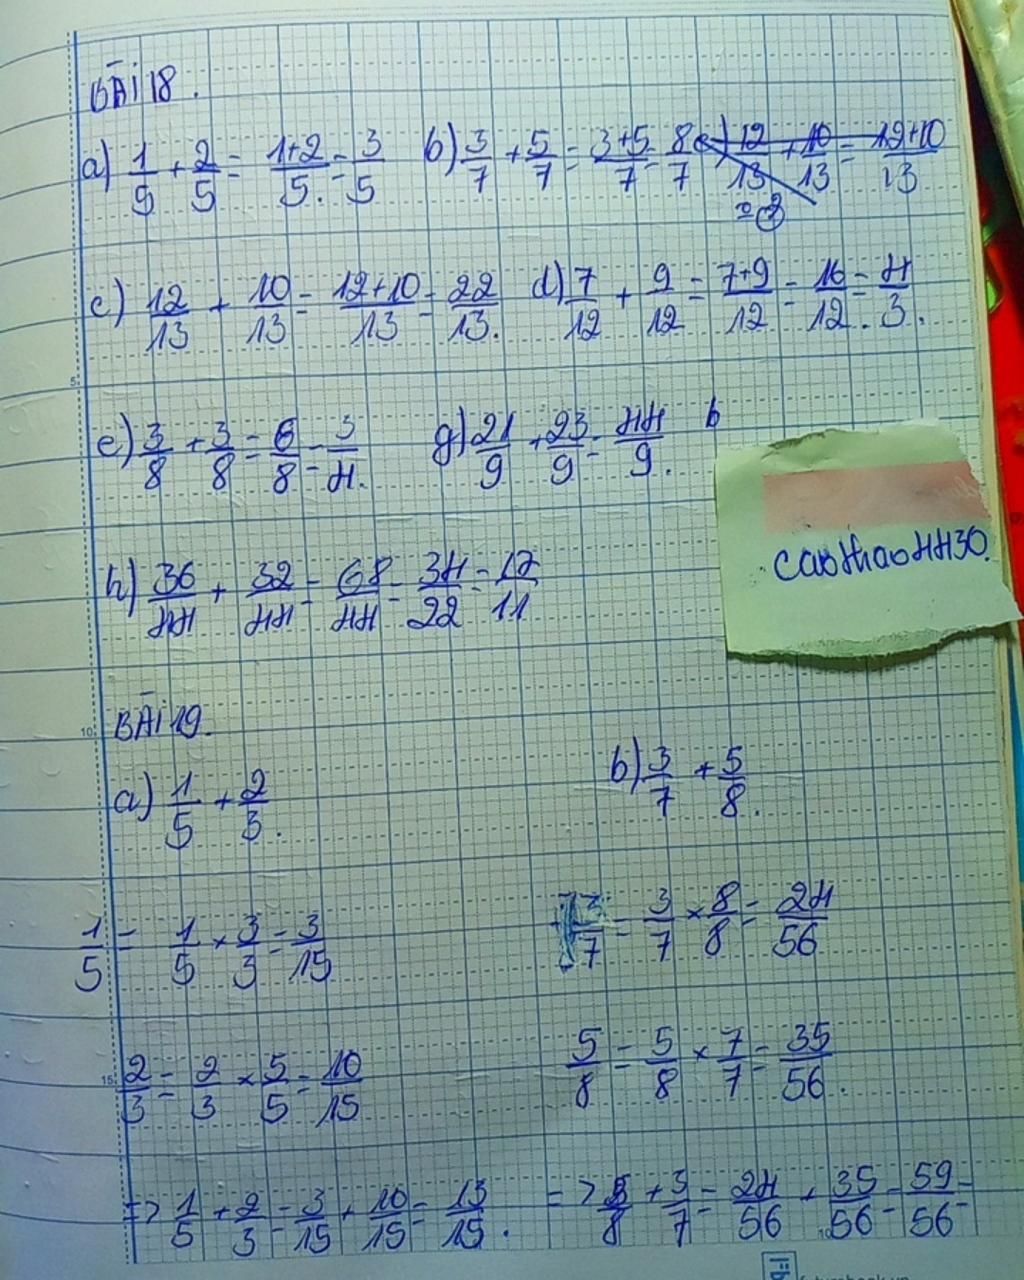 BÀI 18.
a) 1/5 + 2/5 = 1+2/5. = 3/5 b) 3/7 + 5/7 = 3+5/7 = 8/7 c) 12/13 + 10/13 = 12+10/13
c) 12/13 + 10/13 = 12+10/13 = 22/13. d) 7/12 + 9/12 = 7+9/12 = 16/12. = 4/3.
e) 3/8 + 3/8 = 6/8 = 3/4. g) 21/9 + 23/9 = 44/9. b
h) 36/44 + 32/44 = 68/44 = 34/22 = 17/11
caothao4430.
BÀI 19.
a) 1/5 + 2/3. b) 3/7 + 5/8.
1/5 = 1/5 × 3/3 = 3/15 3/7 = 3/7 × 8/8 = 24/56
2/3 = 2/3 × 5/5 = 10/15 5/8 = 5/8 × 7/7 = 35/56.
=> 1/5 + 2/3 = 3/15 + 10/15 = 13/15. => 5/8 + 3/7 = 24/56 + 35/56 = 59/56 =
5
10
15